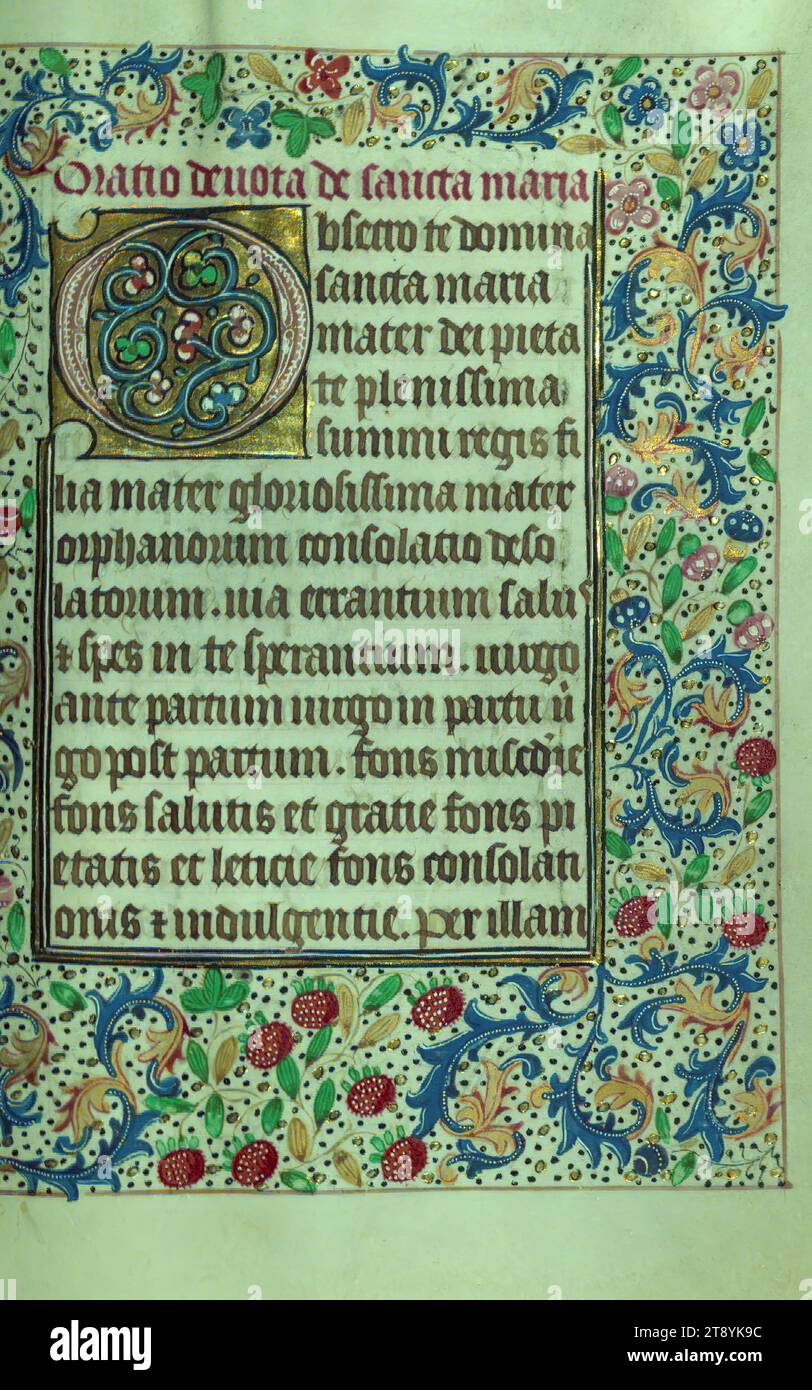 Oratio deuota de sancta maria
Obsecro te domina
sancta maria
mater dei pieta
te plenissima
summi regis fi
lia mater gloriosissima mater
orphanorum consolatio deso
latorum. uia errantium salus
⁊ spes in te sperantium. uirgo
ante partum uirgo in partu ũ
go post partum. fons misc̃die
fons salutis et gratie fons pi
etatis et leticie fons consolati
onis ⁊ indulgentie. Per illam
alamy
alamy
Image ID: 2T8YK9C
www.alamy.com